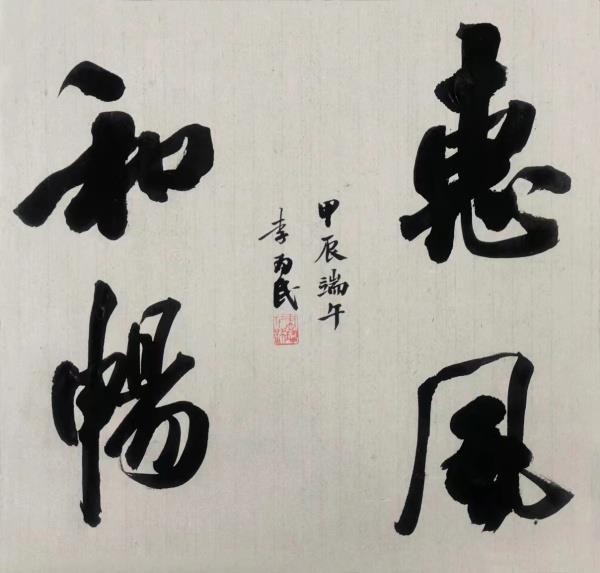 惠风
和畅
甲辰端午
李为民